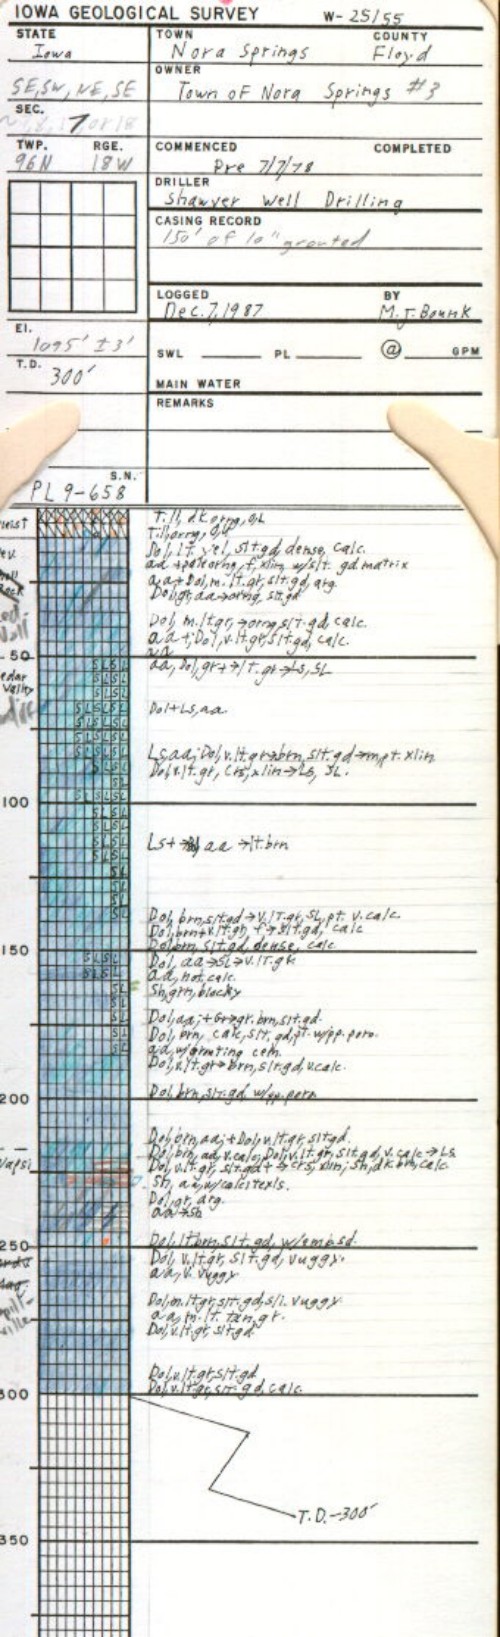 IOWA GEOLOGICAL SURVEY W-25155
STATE TOWN COUNTY
Iowa Nora Springs Floyd
OWNER
SE, SW, NE, SE Town of Nora Springs #3
SEC.
7 or 18
TWP. RGE. COMMENCED COMPLETED
96N 18W Pre 7/7/78
DRILLER
Shawver Well Drilling
CASING RECORD
150' of 10" grouted
LOGGED BY
Dec. 7, 1987 M.J. Bounk
El.
1095' ±3'
SWL PL @ GPM
T.D.
300'
MAIN WATER
REMARKS
S.N.
PL 9-658
Till, dk orng, oL
Till, orng, oL
Dol, lt. yel, slt.gd, dense, calc.
aa + pale orng, f, xlin w/slt. gd matrix
aa + Dol, m. lt.gr, slt.gd, arg.
Dol, gr, aa → orng, slt.gd
Dol, m. lt.gr, → orng, slt.gd, calc.
aa +; Dol, v. lt.gr, slt.gd, calc.
aa
50
aa, Dol, gr + → lt.gr → Ls, SL
Cedar
Valley
Dol + Ls, aa.
Ls, aa; Dol, v. lt.gr → brn, slt.gd → m, pt. xlin
Dol, v. lt.gr, crs, xlin → Ls, SL.
100
Ls + aa → lt. brn
Dol, brn, slt.gd → v. lt.gr, SL, pt. v. calc.
Dol, brn + v. lt.gr, f → slt.gd, calc
Dol, brn, slt.gd, dense, calc
150
Dol, aa → SL → v. lt.gr
aa, not calc.
Sh, grn, blocky
Dol, aa; + Gr → gr. brn, slt.gd.
Dol, brn, calc, slt.gd, pt. w/pp. poro.
aa, w/grouting cem.
Dol, v. lt.gr → brn, slt.gd, v. calc.
200
Dol, brn, slt.gd, w/pp. poro
Dol, brn, aa; + Dol, v. lt.gr, slt.gd.
Dol, brn, aa, v. calc; Dol, v. lt.gr, slt.gd, v. calc → Ls
Dol, v. lt.gr, slt.gd + → crs, xlin; Sh, dk. brn, calc.
Sh, aa, w/calcite xls.
Dol, gr, arg.
aa → Sh
250
Dol, lt. brn, slt.gd, w/emb. sd.
Dol, v. lt.gr, slt.gd, vuggy.
aa, v. vuggy
Dol, m. lt.gr, slt.gd, sli. vuggy
aa, m. lt. tan, gr.
Dol, v. lt.gr, slt.gd
Dol, v. lt.gr, slt.gd
Dol, v. lt.gr, slt.gd, calc.
300
T.D.-300'
350